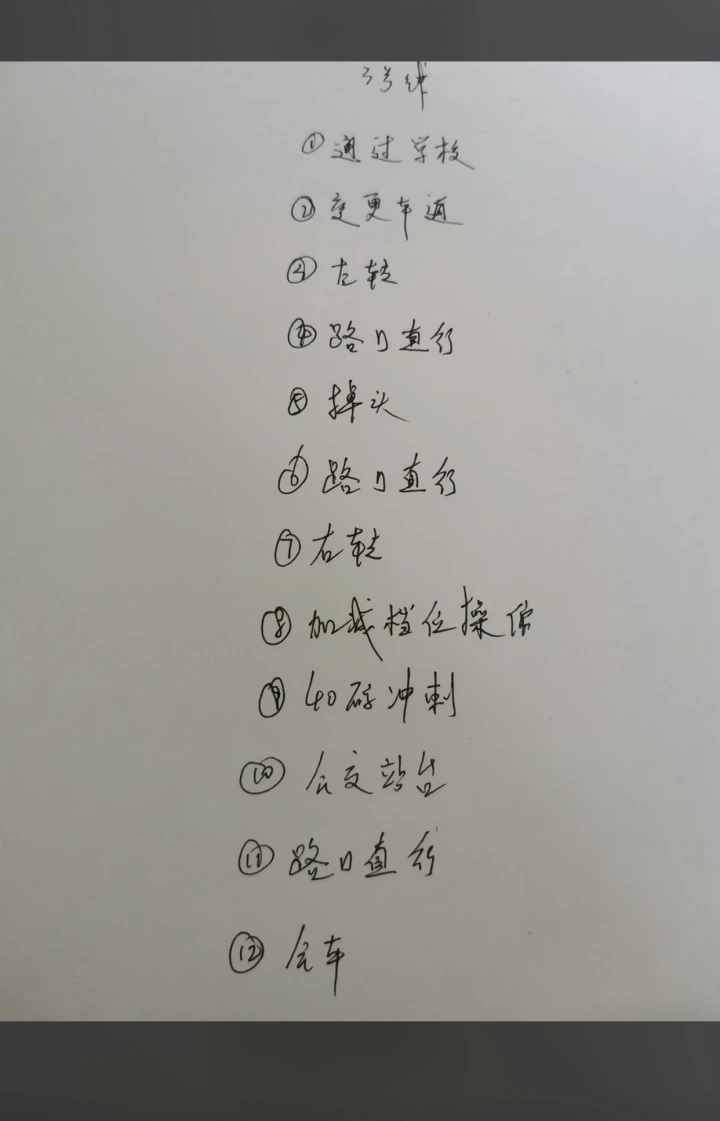 3号线
① 通过学校
② 变更车道
③ 左转
④ 路口直行
⑤ 掉头
⑥ 路口直行
⑦ 右转
⑧ 加减档位操作
⑨ 40码冲刺
⑩ 公交站台
⑪ 路口直行
⑫ 会车